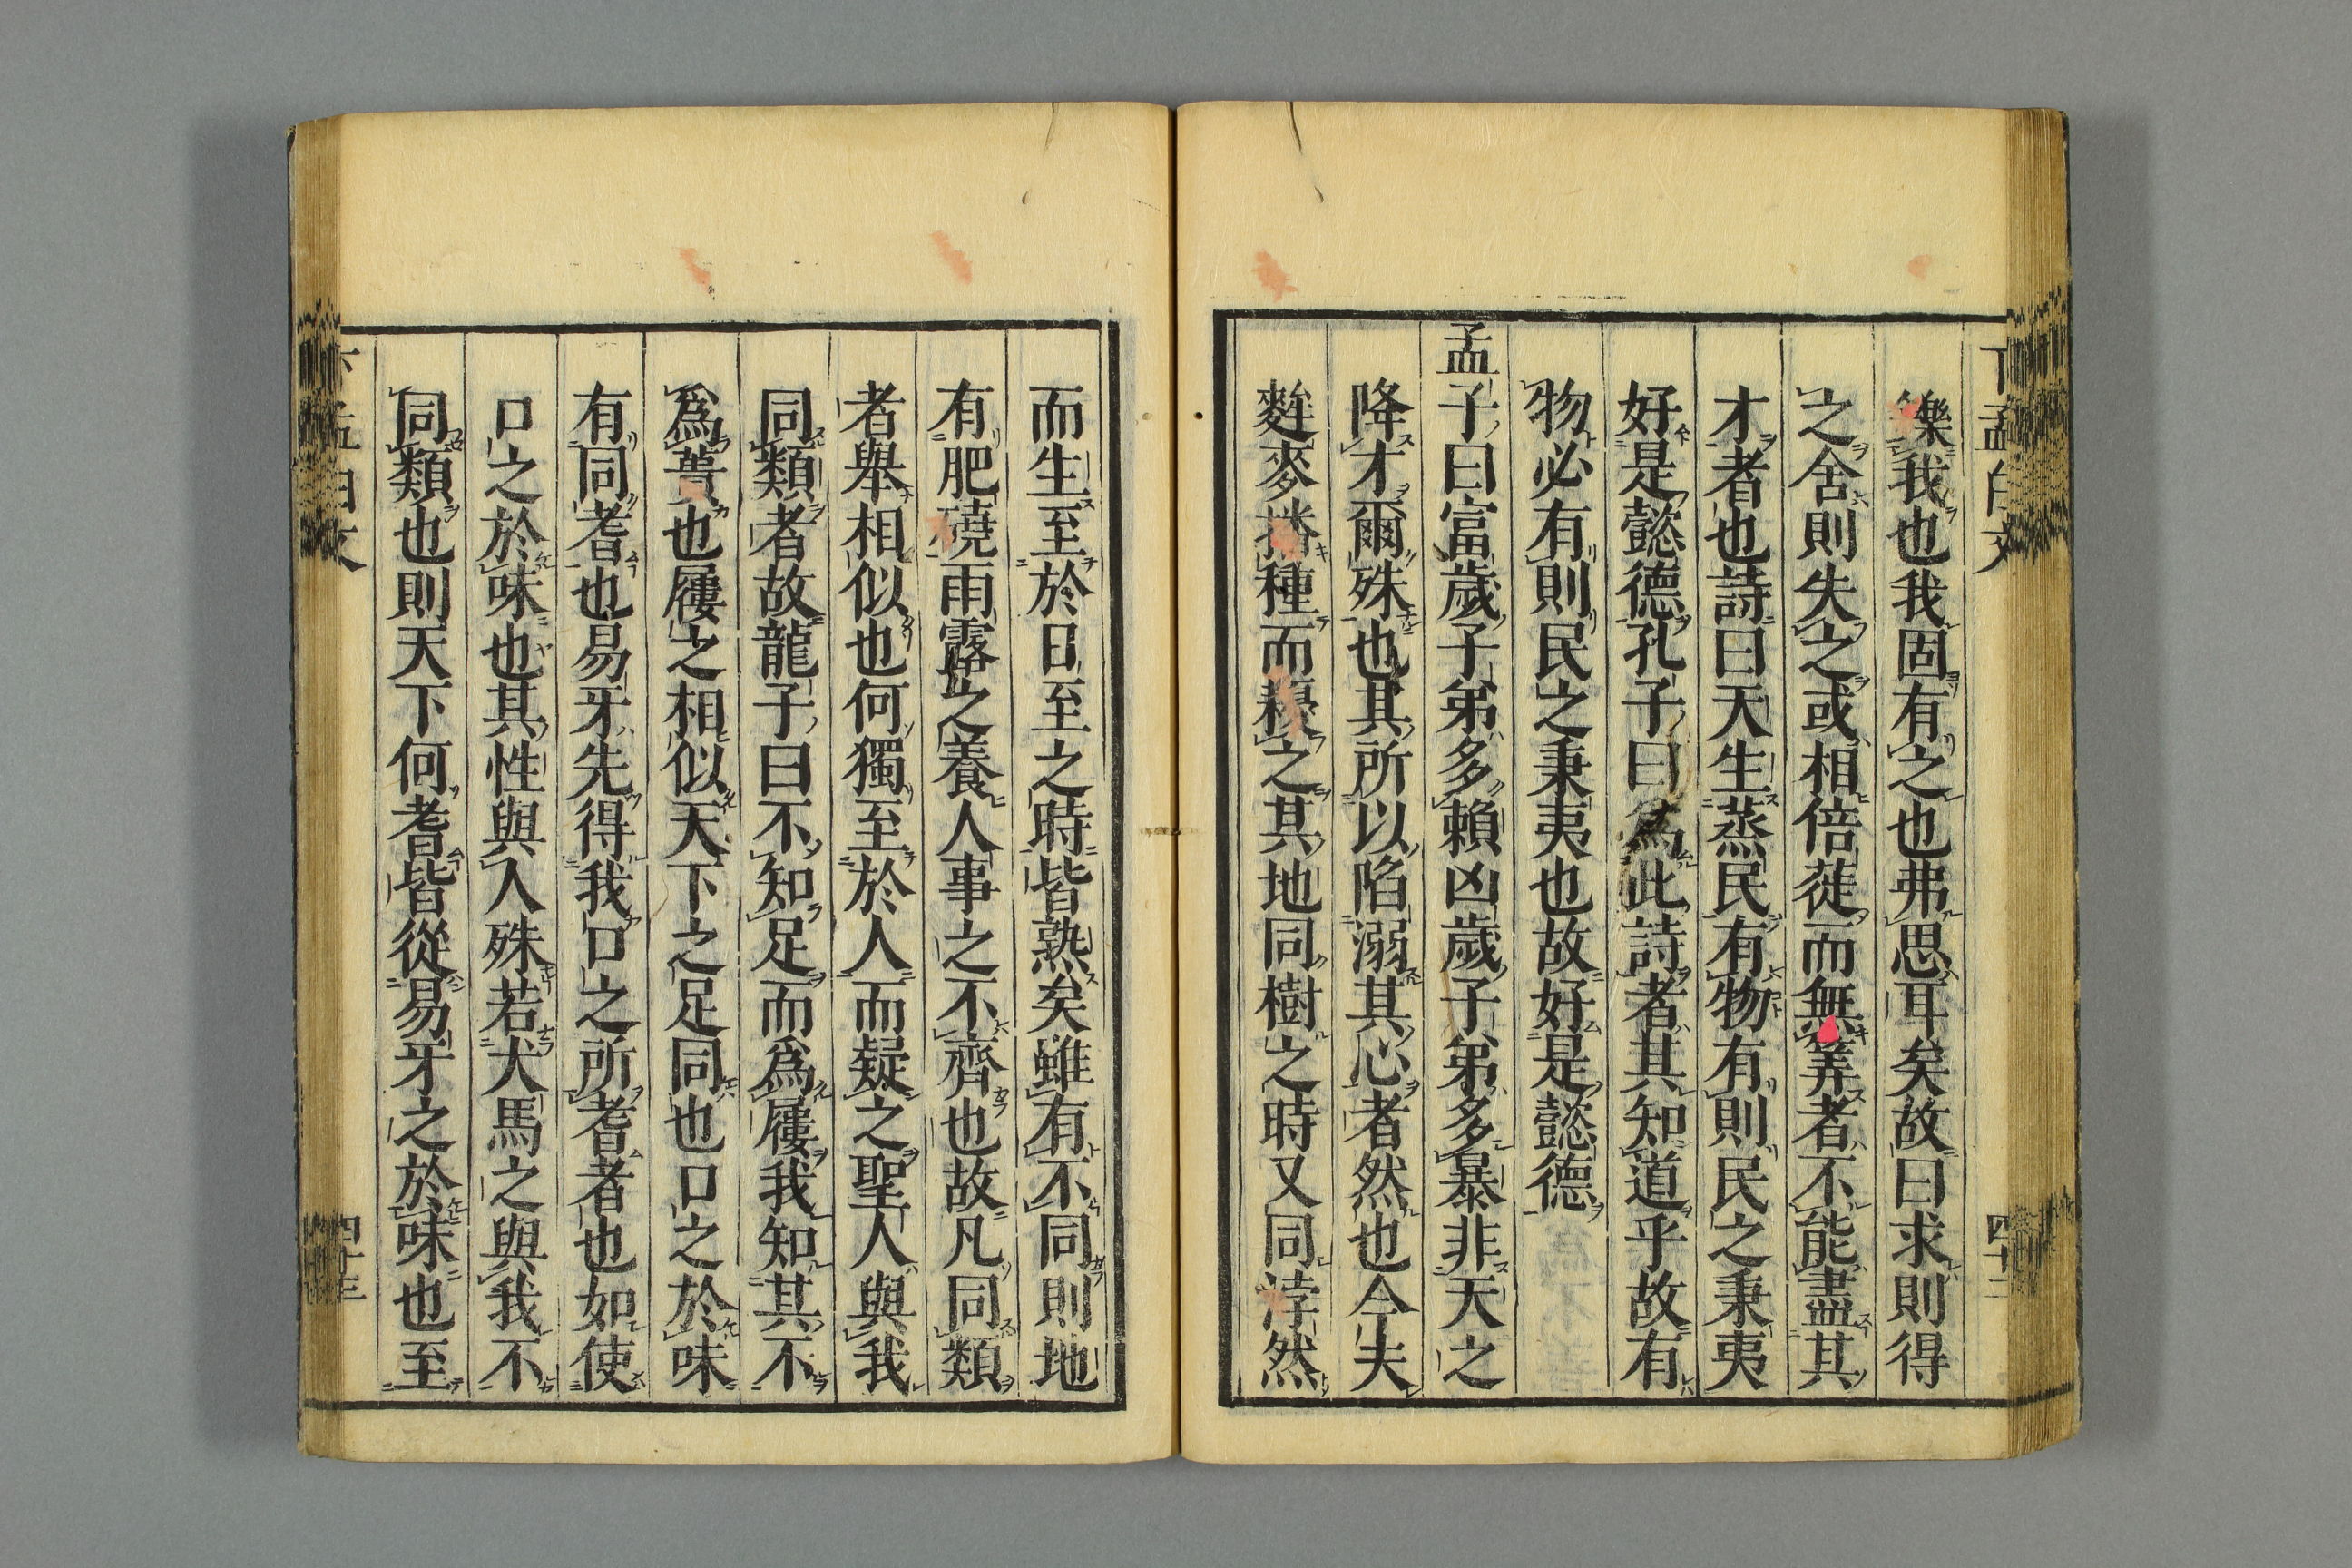 下孟白文
鑠我也我固有之也弗思耳矣故曰求則得
之舍則失之或相倍蓰而無筭者不能盡其
才者也詩曰天生蒸民有物有則民之秉夷
好是懿德孔子曰為此詩者其知道乎故有
物必有則民之秉夷也故好是懿德
孟子曰富歲子弟多賴凶歲子弟多暴非天之
降才爾殊也其所以陷溺其心者然也今夫
麰麥播種而耰之其地同樹之時又同浡然
而生至於日至之時皆熟矣雖有不同則地
有肥磽雨露之養人事之不齊也故凡同類
者舉相似也何獨至於人而疑之聖人與我
同類者故龍子曰不知足而為屨我知其不
為蕢也屨之相似天下之足同也口之於味
有同耆也易牙先得我口之所耆者也如使
口之於味也其性與人殊若犬馬之與我不
同類也則天下何耆皆從易牙之於味也至
四十三